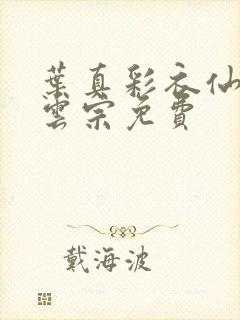 葉真彩衣仙
雲宗免費
戴海波